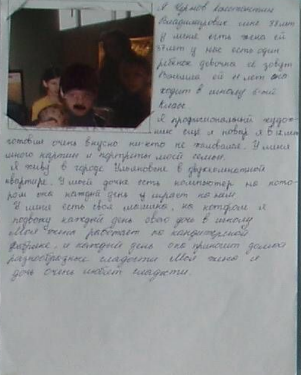 Я Чернов Константин
Владимирович мне 38 лет
у меня есть жена ей
37 лет у нас есть один
ребёнок девочка её зовут
ей 11 лет она
ходит в школу в 5-ый
класс.
Я профессиональный худож-
ник ещё и повар я
готовлю очень вкусно ни-кто не жаловался. У меня
много картин и портреты моей семьи.
Я живу в городе Ульяновске в двухкомнатной
квартире. У моей дочке есть компьютер на кото-
ром она каждый день играет
У меня есть своя машина, на котором я
подвожу каждый день свою дочь в школу
Моя жена работает на кондитерской
фабрике, и каждый день она приносит домой
разнообразные сладости Моя жена и
дочь очень любят сладости.